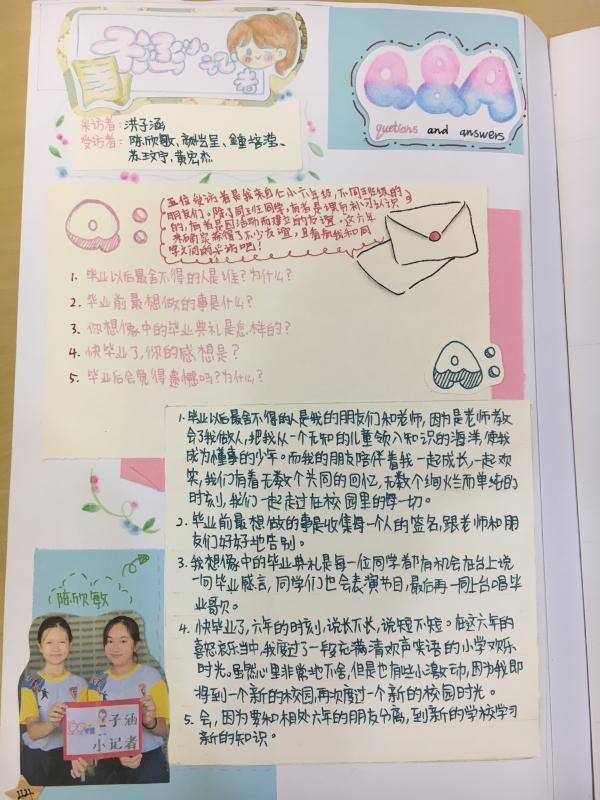 子涵小记者
Q&A
questions and answers
采访者：洪子涵
受访者：陈欣敏、颜岂呈、钟培滢、
苏玟宁、黄宏杰
五位受访者是我来自仁小六年级，不同班级的
朋友们。除了同班同学，有者是认识
的，有者是因活动而建立的友谊。这六年
来的确实获得了不少友谊，且看看我和同
学之间的采访吧！
Q
1. 毕业以后最舍不得的人是谁？为什么？
2. 毕业前最想做的事是什么？
3. 你想像中的毕业典礼是怎样的？
4. 快毕业了，你的感想是？
5. 毕业后会觉得遗憾吗？为什么？
A
1. 毕业以后最舍不得的人是我的朋友们和老师，因为是老师教
会了我做人，把我从一个无知的儿童领入知识的海洋，使我
成为懂事的少年。而我的朋友陪伴着我一起成长，一起欢
笑，我们有着无数个共同的回忆，无数个绚烂而单纯的
时刻，我们一起走过在校园里的每一切。
2. 毕业前最想做的事是收集每一个人的签名，跟老师和朋
友们好好地告别。
3. 我想像中的毕业典礼是每一位同学都有机会在台上说
一句毕业感言，同学们也会表演节目，最后再一同上台唱毕
业歌。
4. 快毕业了，六年的时刻，说长不长，说短不短。在这六年的
喜怒哀乐当中，我度过了一段充满清欢声笑语的小学欢乐
时光。虽然心里非常地不舍，但是也有些小激动，因为我即
将到一个新的校园，再次度过一个新的校园时光。
5. 会，因为要和相处六年的朋友分离，到新的学校学习
新的知识。
陈欣敏
子涵
小记者
44